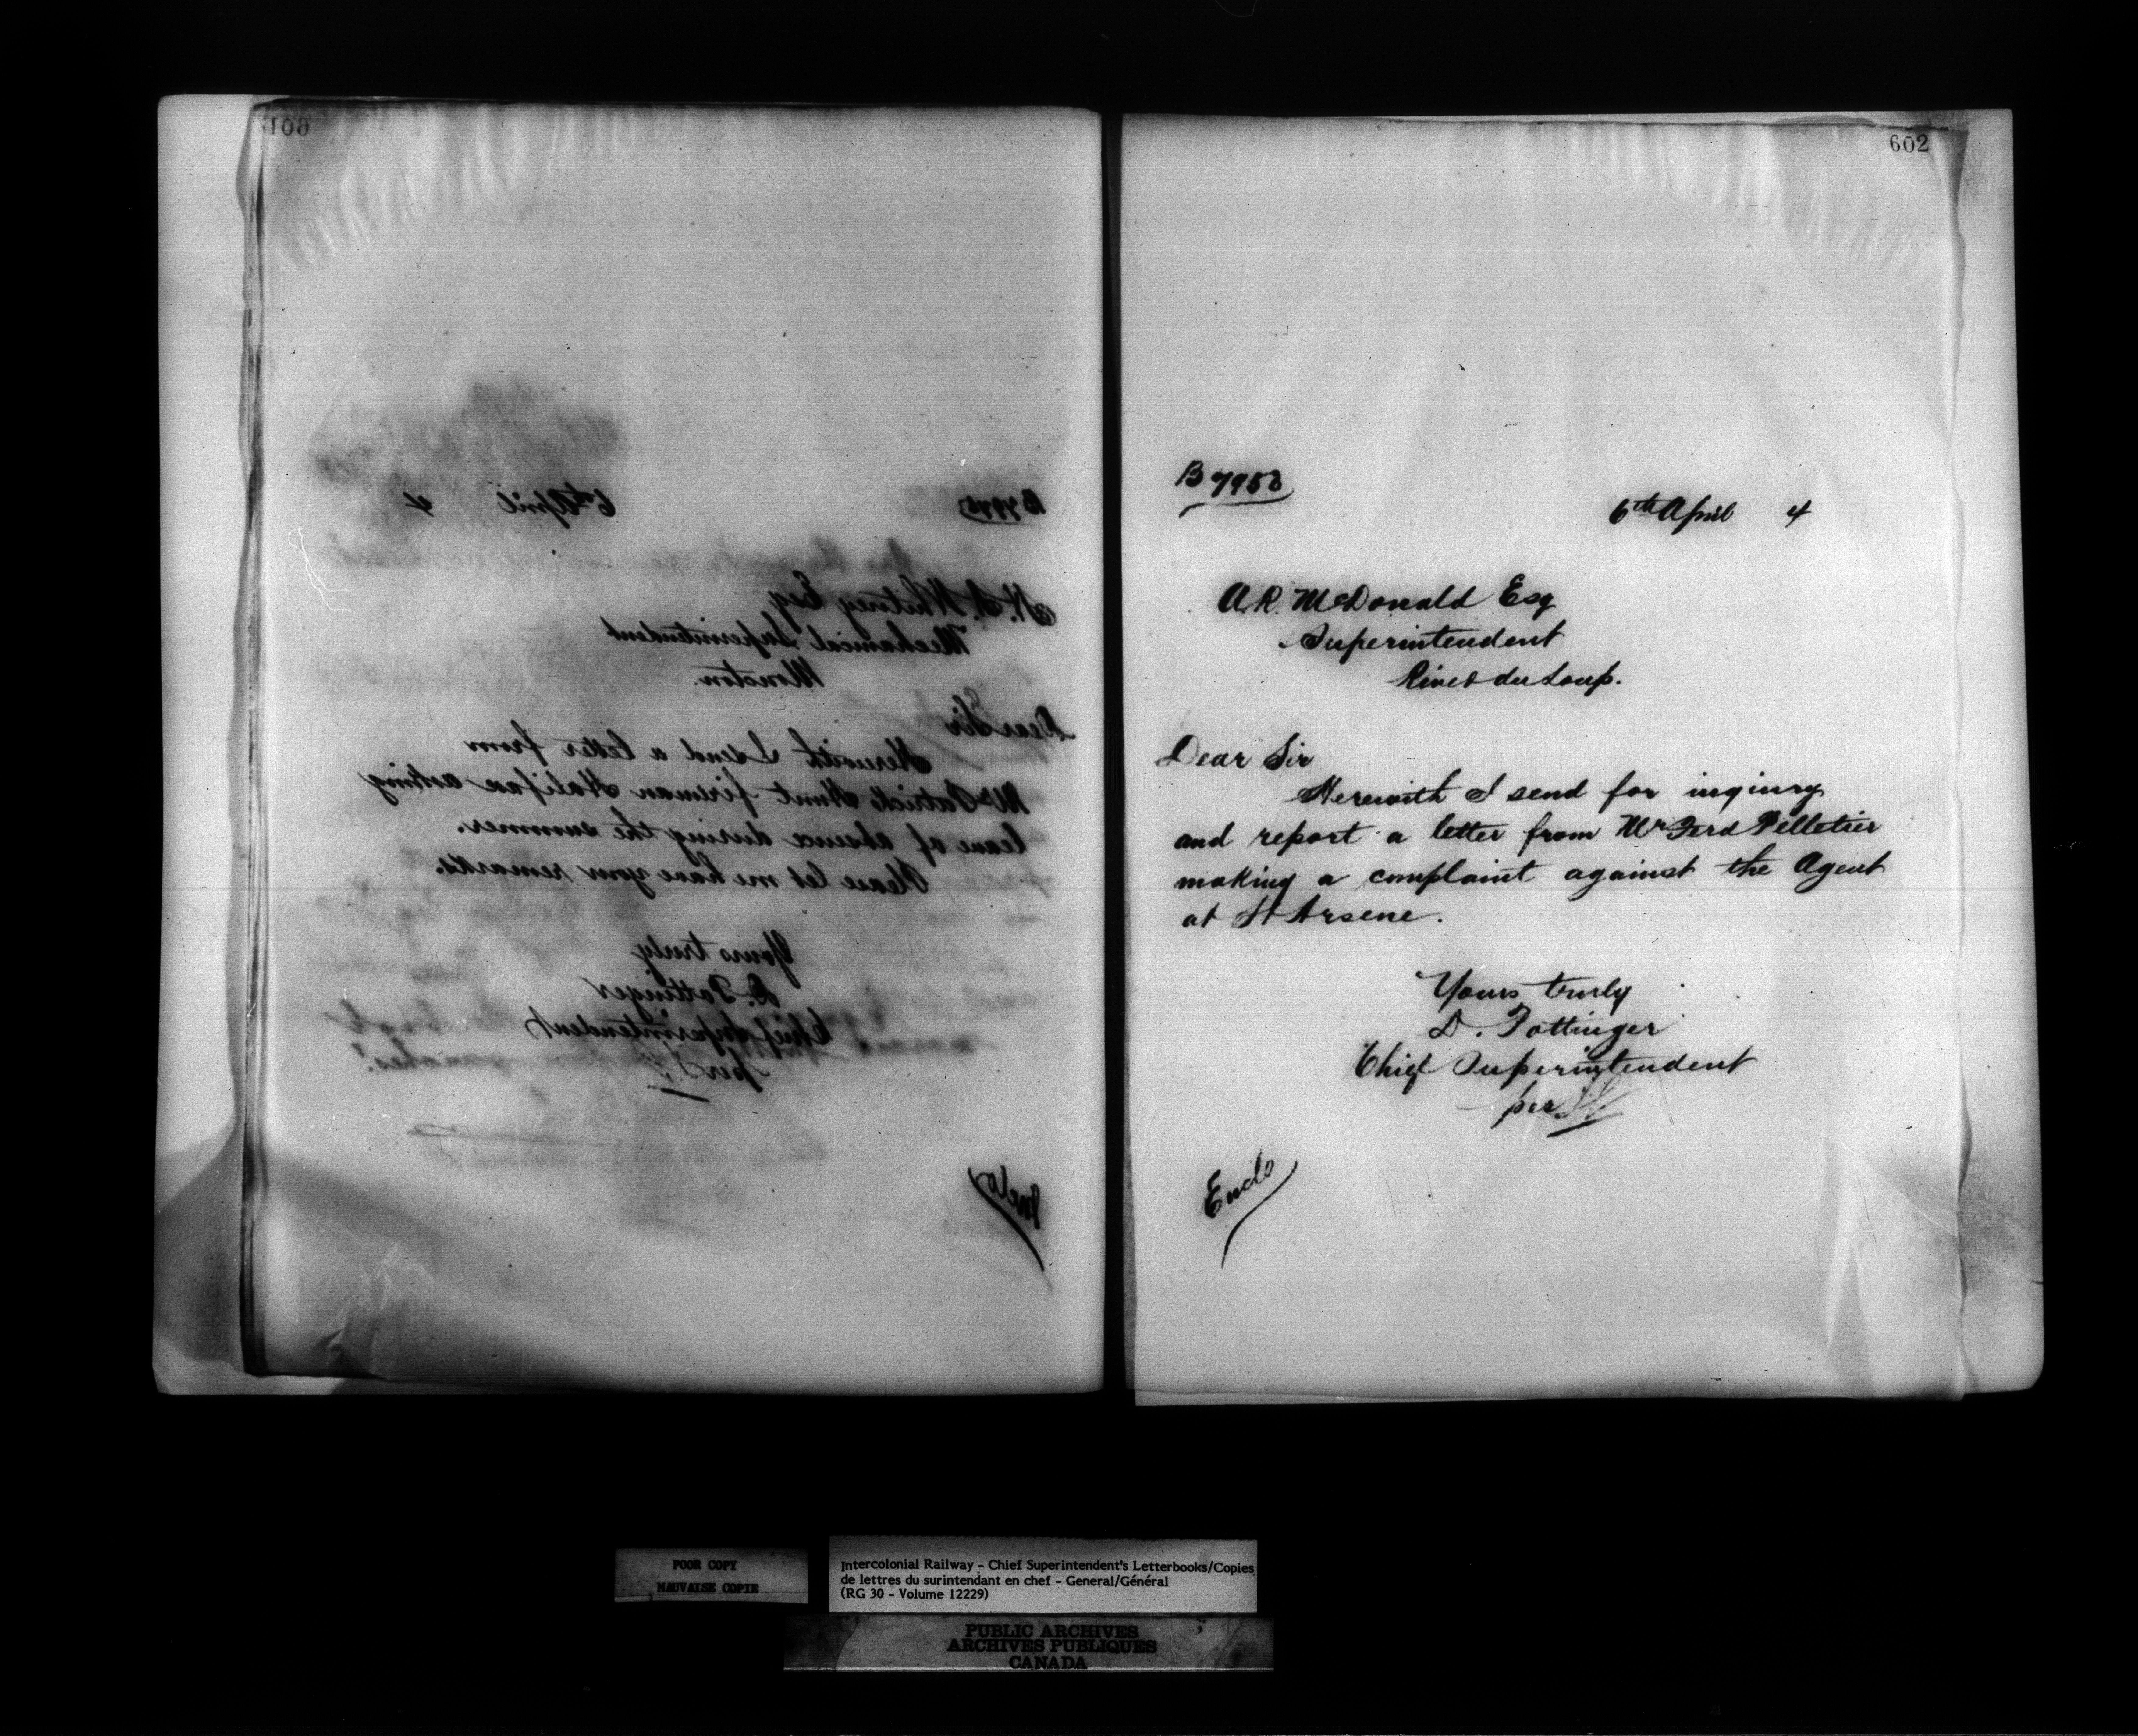 601
B 7945
6th April 4
H. A. Whitney Esq
Mechanical Superintendent
Moncton.
Dear Sir
Herewith I send a letter from
Mr Patrick Hunt fireman Halifax asking
leave of absence during the summer.
Please let me have your remarks.
Yours truly
D. Pottinger
Chief Superintendent
per
Enclo
602
B 7958
6th April 4
A. R. McDonald Esq
Superintendent
River du Loup.
Dear Sir
Herewith I send for inquiry
and report a letter from Mr Ferd Pelletier
making a complaint against the Agent
at St Arsene.
Yours truly
D. Pottinger
Chief Superintendent
per
Enclo
POOR COPY
MAUVAISE COPIE
Intercolonial Railway - Chief Superintendent's Letterbooks/Copies
de lettres du surintendant en chef - General/Général
(RG 30 - Volume 12229)
PUBLIC ARCHIVES
ARCHIVES PUBLIQUES
CANADA